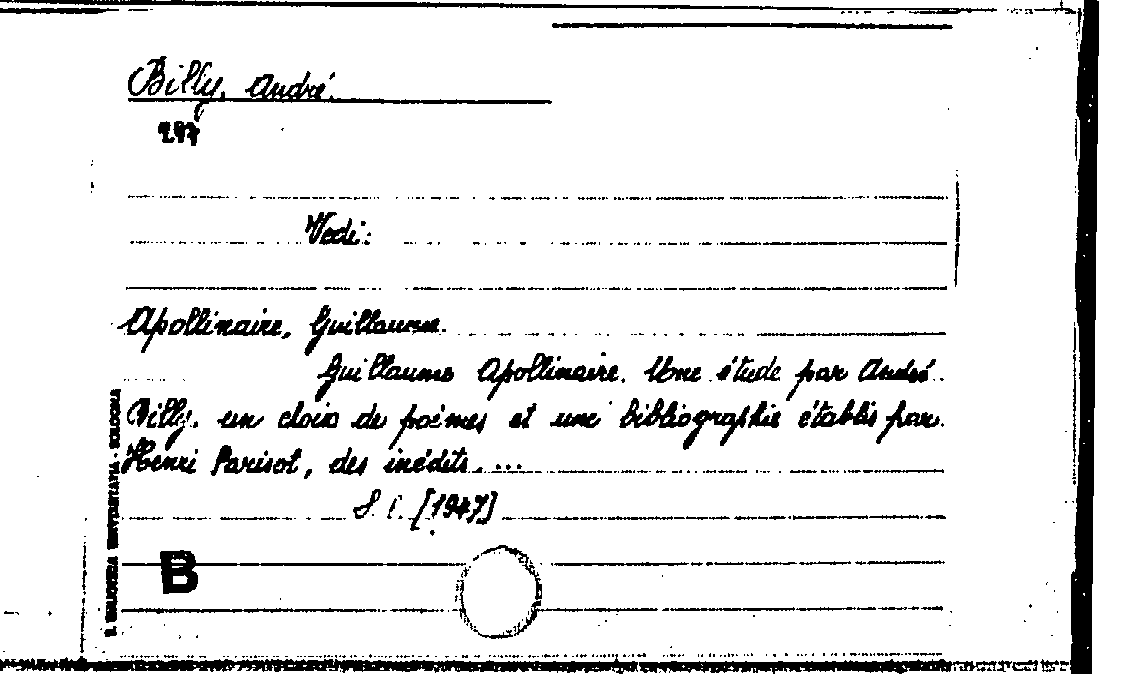 Billy, André.
297
Vedi:
Apollinaire, Guillaume.
Guillaume Apollinaire. Une étude par André
Billy, un choix de poèmes et une bibliographie établis par
Henri Parisot, des inédits, ...
S. l. [1947]
B
B. BIBLIOTECA UNIVERSITARIA - BOLOGNA